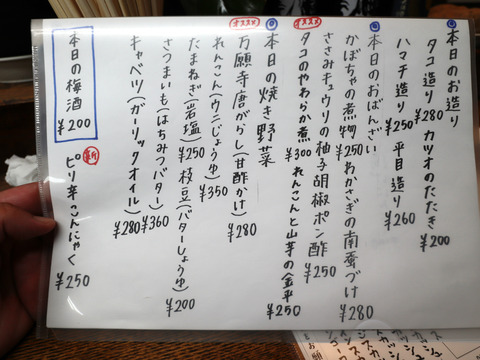 本日のお造り
タコ造り ¥280 カツオのたたき ¥200
ハマチ造り ¥250 平目造り ¥260
本日のおばんざい
かぼちゃの煮物 ¥250 わかさぎの南蛮づけ ¥280
ささみキュウリの柚子胡椒ポン酢 ¥250
オススメ タコのやわらか煮 ¥300 れんこんと山芋の金平 ¥250
本日の焼き野菜
オススメ 万願寺唐がらし(甘酢かけ) ¥280
れんこん(ウニじょうゆ) ¥350
たまねぎ(岩塩) ¥250 枝豆(バターしょうゆ) ¥200
さつまいも(はちみつバター) ¥360
キャベツ(ガーリックオイル) ¥280
本日の梅酒 ¥200
新 ピリ辛こんにゃく ¥250